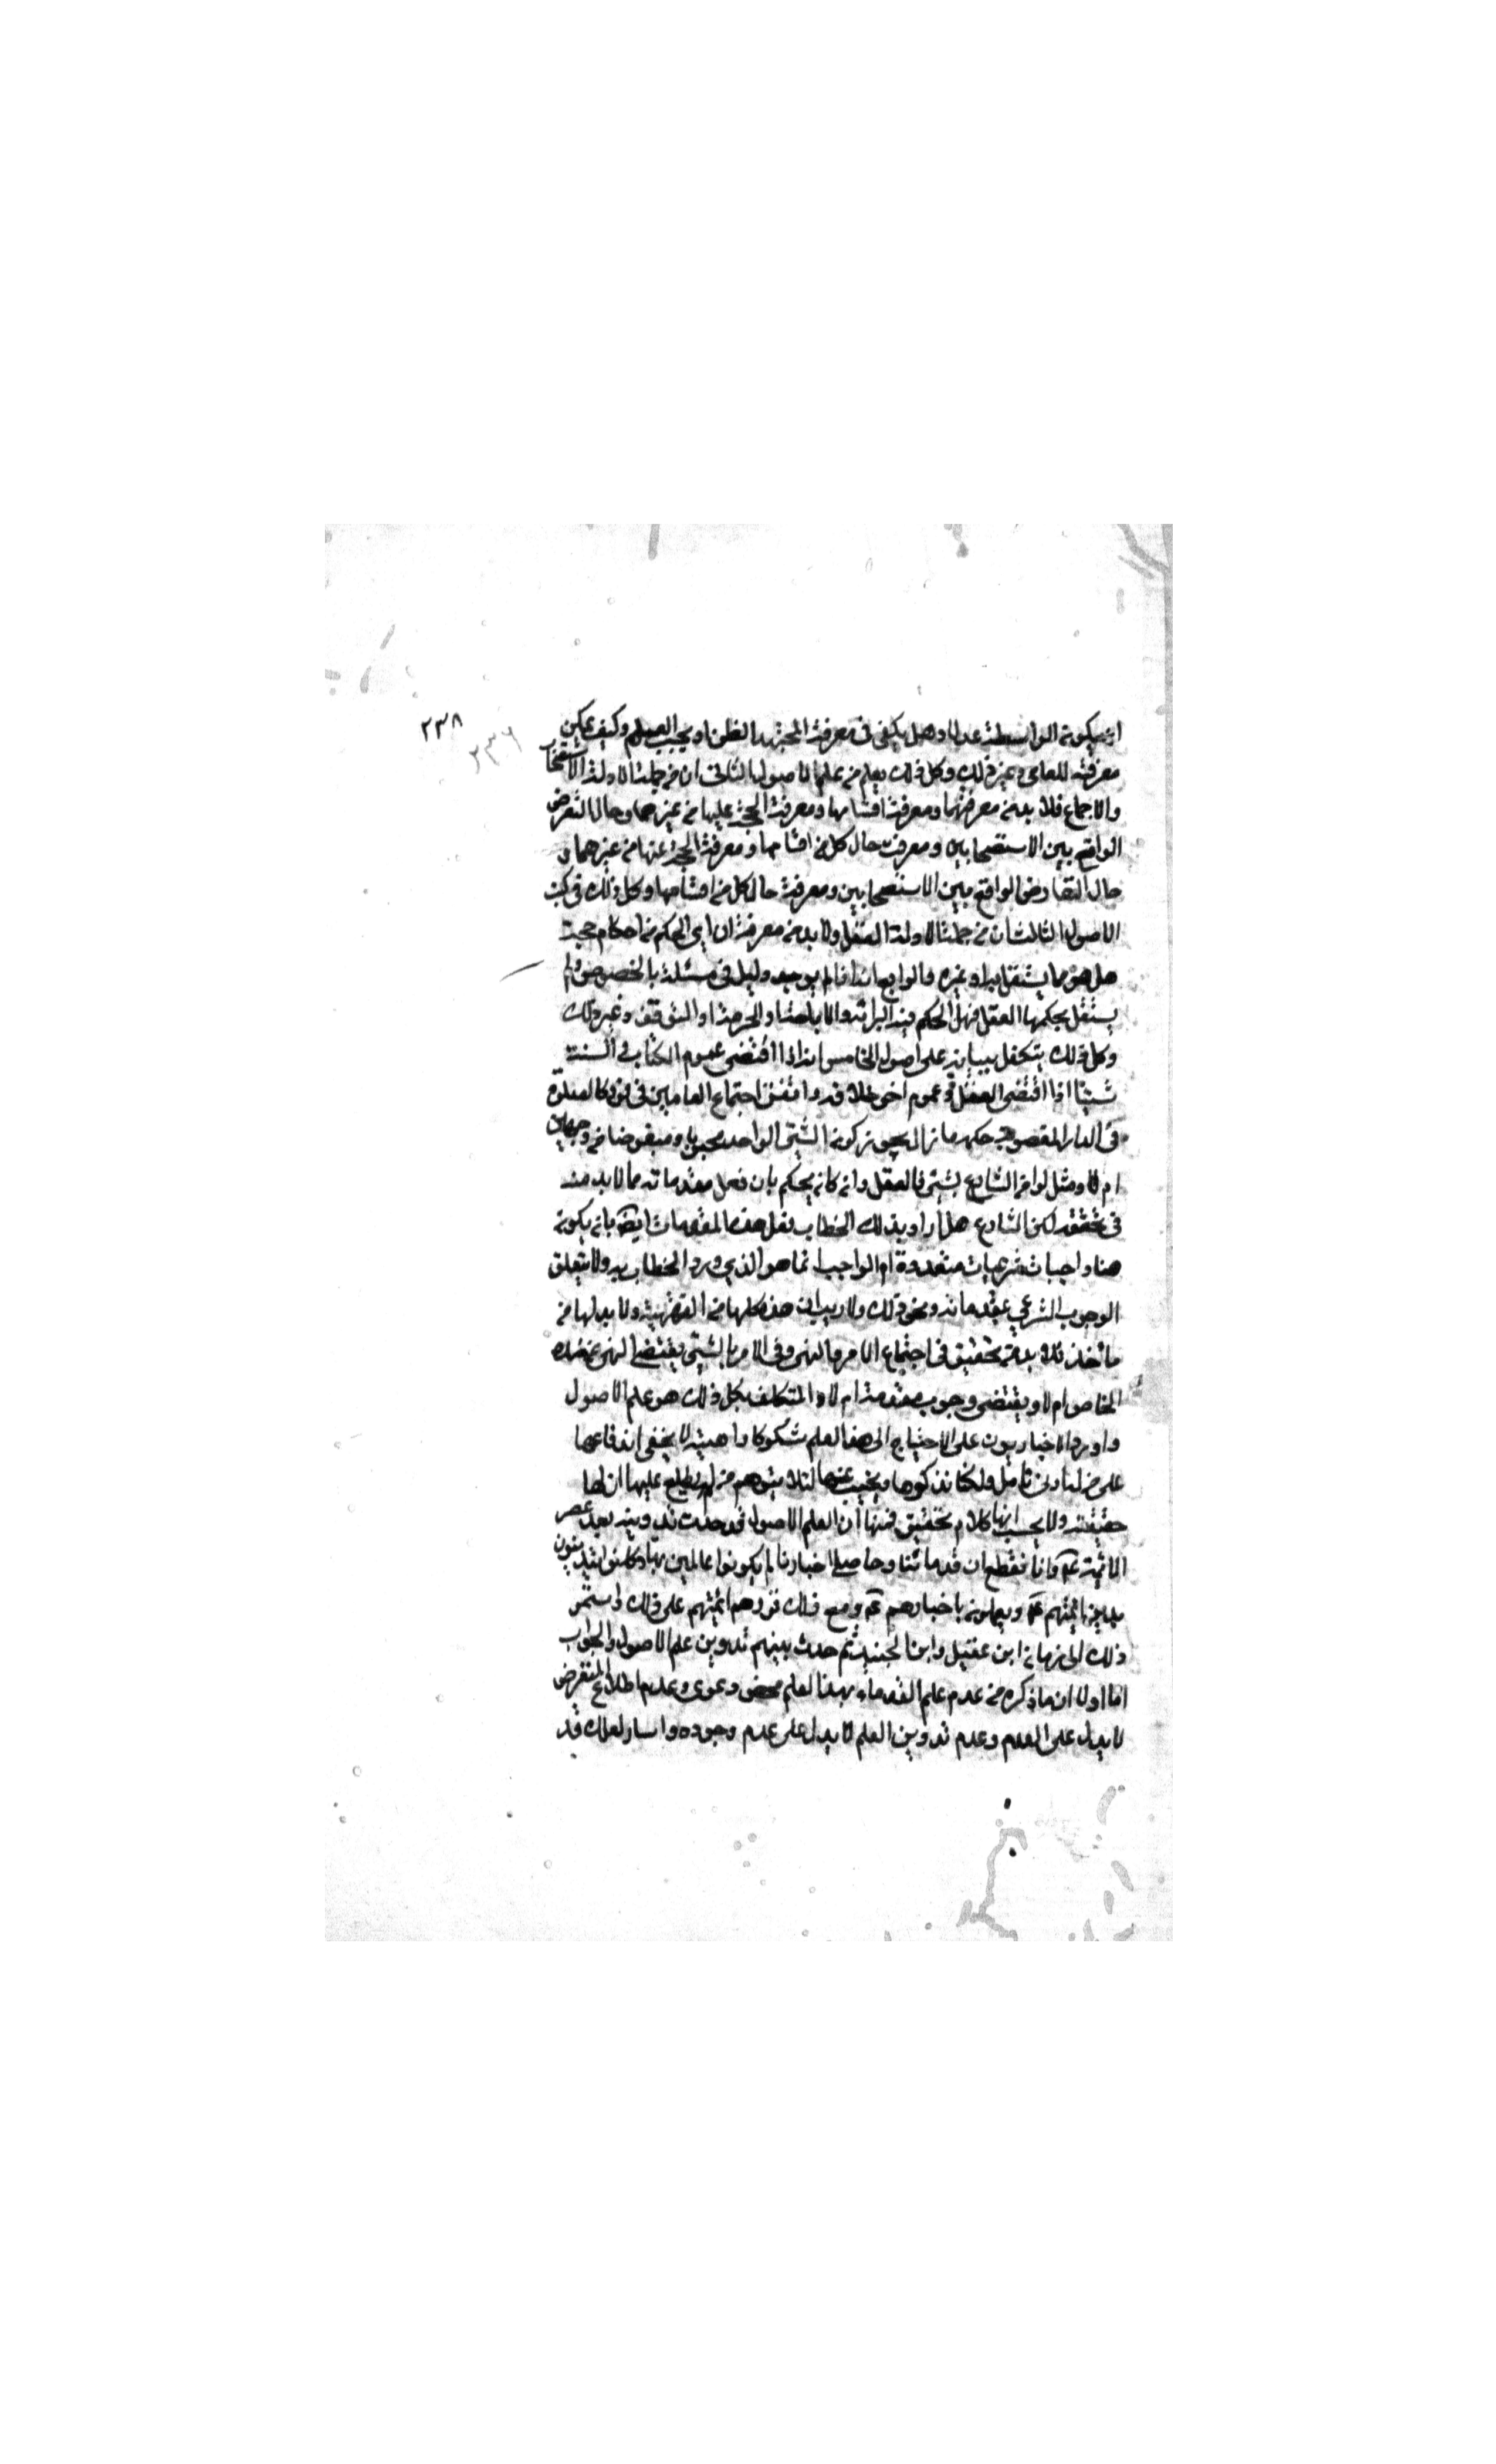 ٢٣٨
٢٣٦
ان يكون الواسطة عدلا وهل يكفى فى معرفة المجتهد الظن او يجب العلم وكيف يمكن
معرفته للعامى وغير ذلك وكل ذلك يعلم من علم الاصول الثانى ان من جملة الادلة الاستصحاب
والاجماع فلا بد من معرفتهما ومعرفة اقسامها ومعرفة الحجة عليها من غيرهما وحال التعارض
الواقع بين الاستصحابين ومعرفة حال كل من اقسامها ومعرفة الحجة عنها من غيرهما و
حال التعارض الواقع بين الاستصحابين ومعرفة حال كل من اقسامها وكل ذلك فى كتب
الاصول الثالث ان من جملة الادلة العقل ولا بد من معرفة ان اى الحكم من احكام حجة
هل هو مما يستقل به او غيره والرابع انه اذا لم يوجد دليل فى مسئلة بالخصوص ولم
يستقل بحكمها العقل فهل الحكم فيه البرائة والاباحة او الحرمة او التوقف وغير ذلك
وكل ذلك يتكفل ببيانه علم اصول الخامس انه اذا اقتضى عموم الكتاب او السنة
شيئا اذا اقتضى العقل او عموم اخر خلافه واتفق اجتماع العامين فى فرد كالصلوة
فى الدار المغصوبة حكمه ماذا ايجوز كون الشئ الواحد محبوبا ومبغوضا من وجهين
ام لا ومثل لو امر الشارع بشئ فالعقل وان كان يحكم بان فعل مقدماته مما لا بد منه
فى تحققه لكن الشارع هل اراد بذلك الخطاب فعل هذه المقدمات ايضا بان يكون
هنا واجبات شرعيات متعددة ام الواجب انما هو الذى ورد الخطاب به ولا يتعلق
الوجوب الشرعى بمقدماته ونحو ذلك ولا ريب ان هذه كلها من الفقهية ولا بد لها من
مأخذ فلا بد من تحقيق فى اجتماع الامر والنهى وفى الامر بالشئ يقتضى النهى عن ضده
الخاص ام لا ويقتضى وجوب مقدمته ام لا والمتكلف بكل ذلك هو علم الاصول
واورد الاخباريون على الاحتياج الى هذا العلم شكوكا واهية لا يخفى اندفاعها
على من له ادنى تامل ولكنا نذكرها ونجيب عنها لئلا يتوهم من لم يطلع عليها ان لها
حقيقة ولا يحسب انها كلام تحقيق فمنها ان العلم الاصول قد حدث تدوينه بعد عصر
الائمة ع وانا نقطع ان قدمائنا وحاملى اخبارنا لم يكونوا عالمين بها وكانوا يتدينون
بدين ائمتهم ع ويعملون باخبارهم ع ومع ذلك قررهم ائمتهم على ذلك واستمر
ذلك الى زمان ابن عقيل وابن الجنيد ثم حدث بينهم تدوين علم الاصول والجواب
اما اولا ان ما ذكره من عدم علم القدماء بهذا العلم محض دعوى وعدم اطلاع المتعرض
لا يدل على العدم وعدم تدوين العلم لا يدل على عدم وجوده قد